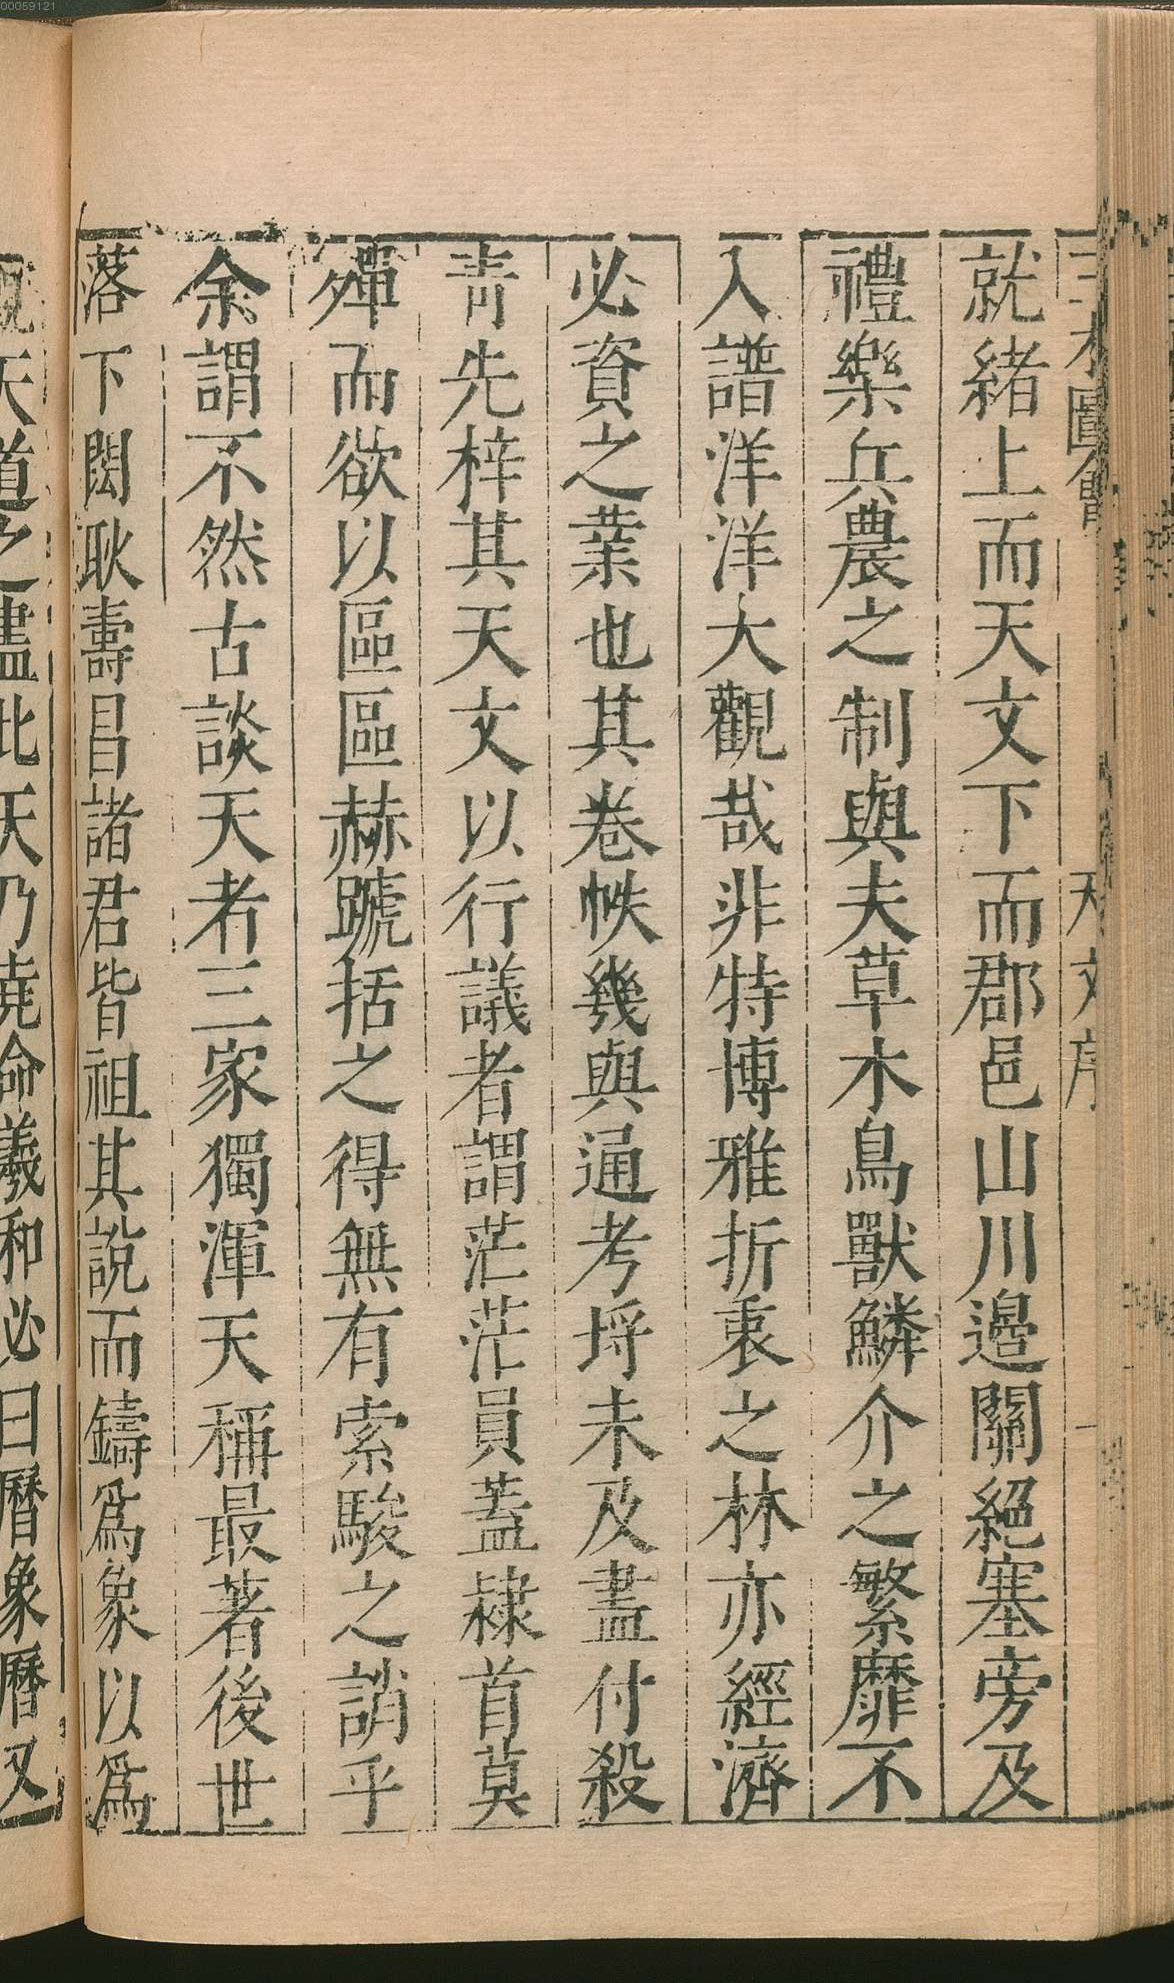 00059121
三才圖會 天文序 一
就緒上而天文下而郡邑山川邉關絕塞旁及
禮樂兵農之制與夫草木鳥獸鱗介之繁靡不
入譜洋洋大觀哉非特博雅折衷之林亦經濟
必資之業也其卷帙幾與通考埒未及盡付殺
青先梓其天文以行議者謂茫茫員蓋隸首莫
殫而欲以區區赫蹏括之得無有索駿之誚乎
余謂不然古談天者三家獨渾天稱最著後世
落下閎耿壽昌諸君皆祖其說而鑄爲象以爲
天道之盡此夫乃堯命羲和必曰曆象曆又